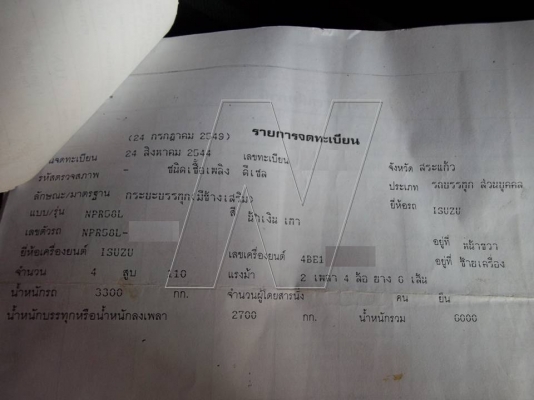 (24 กรกฎาคม 2549) รายการจดทะเบียน
จดทะเบียน 24 สิงหาคม 2544 เลขทะเบียน จังหวัด สระแก้ว
รหัสตรวจสภาพ - ชนิดเชื้อเพลิง ดีเซล ประเภท รถบรรทุก ส่วนบุคคล
ลักษณะ/มาตรฐาน กระบะบรรทุก(มีข้างเสริม) ยี่ห้อรถ ISUZU
แบบ/รุ่น NPR58L สี น้ำเงิน เทา
เลขตัวรถ NPR58L- อยู่ที่ หน้าขวา
ยี่ห้อเครื่องยนต์ ISUZU เลขเครื่องยนต์ 4BE1 อยู่ที่ ซ้ายเครื่อง
จำนวน 4 สูบ 110 แรงม้า 2 เพลา 4 ล้อ ยาง 6 เส้น
น้ำหนักรถ 3300 กก. จำนวนผู้โดยสารนั่ง คน ยืน
น้ำหนักบรรทุกหรือน้ำหนักลงเพลา 2700 กก. น้ำหนักรวม 6000